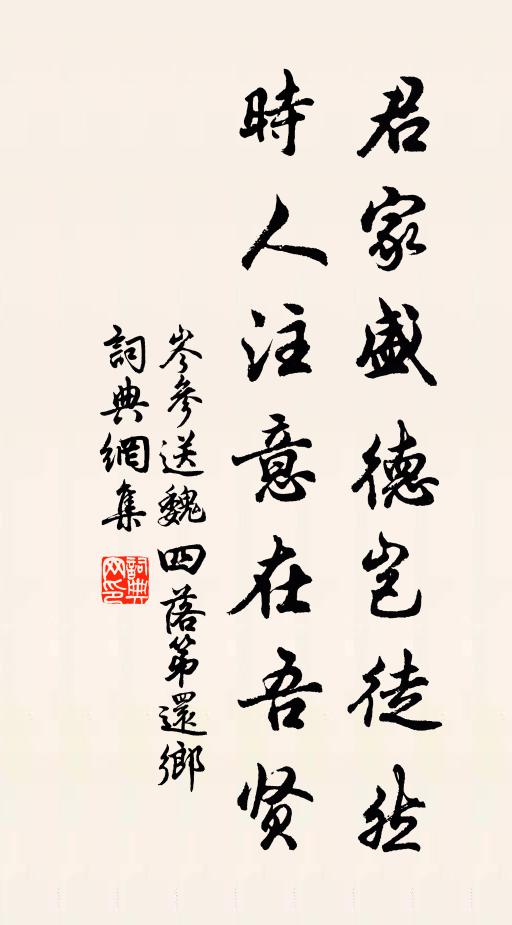 君家盛德岂徒然
時人注意在吾贤
岑參送魏四落第還鄉
詞典網集
詞典网印